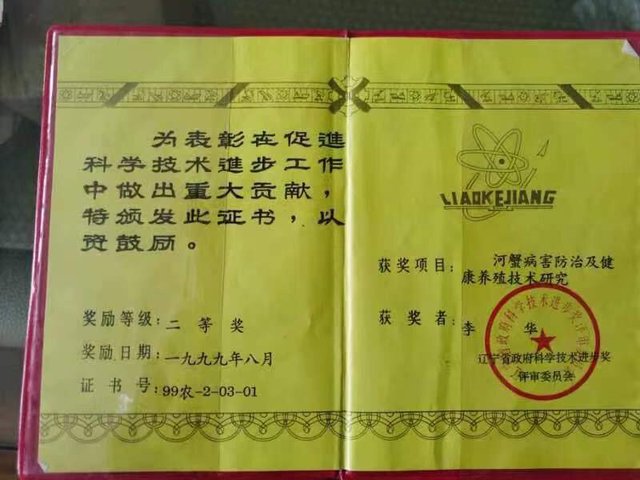 为表彰在促進
科学技术進步工作
中做出重大贡献，
特颁发此证书，以
资鼓励。
奖励等级：二等奖
奖励日期：一九九九年八月
证书号：99农-2-03-01
LIAOKEJIANG
获奖项目：河蟹病害防治及健
康养殖技术研究
获奖者：李华
辽宁省政府科学技术进步奖
评审委员会